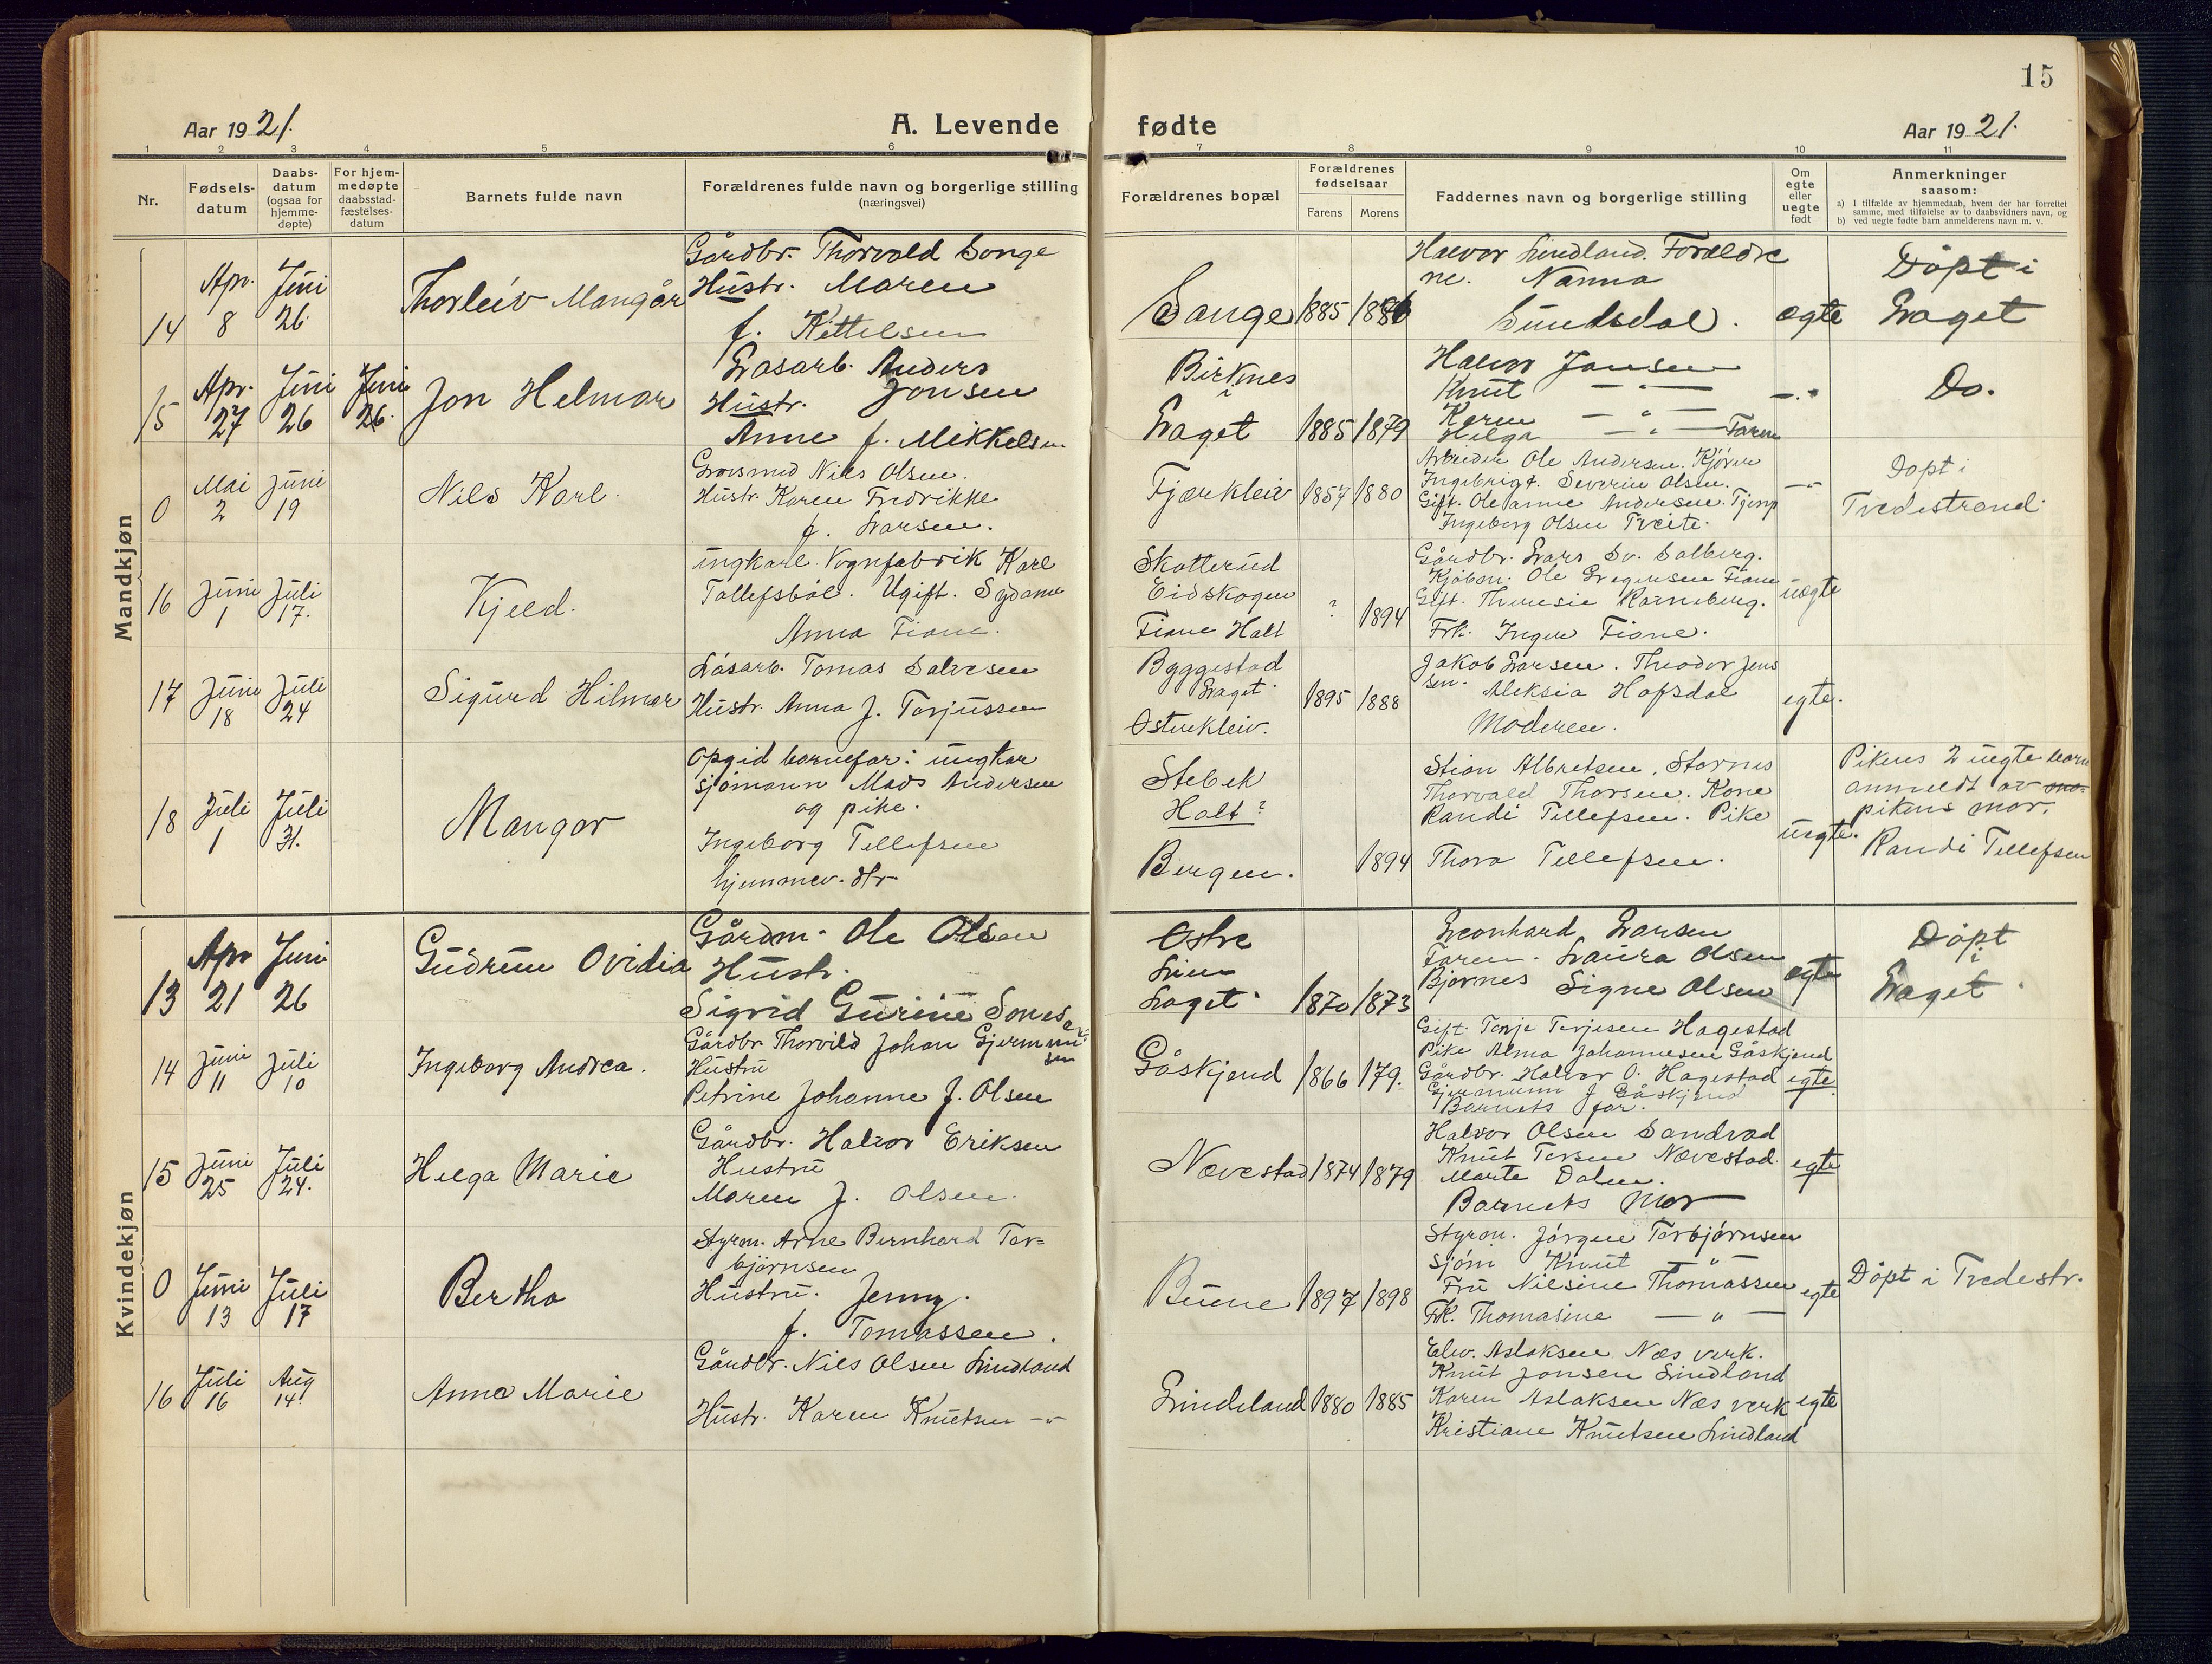 15
Aar 1921.
A. Levende
fødte
Aar 1921.
1 2 3 4 5 6 7 8 9 10 11
Nr.
Fødsels-
datum
Daabs-
datum
(ogsaa for
hjemme-
døpte)
For hjem-
medøpte
daabsstad-
fæstelses-
datum
Barnets fulde navn
Forældrenes fulde navn og borgerlige stilling
(næringsvei)
Forældrenes bopæl
Forældrenes
fødselsaar
Farens
Morens
Faddernes navn og borgerlige stilling
Om
egte
eller
uegte
født
Anmerkninger
saasom:
a) I tilfælde av hjemmedaab, hvem der har forrettet
samme, med tilføielse av to daabsvidners navn, og
b) ved uegte fødte barn anmelderens navn m. v.
Mandkjøn
14
Apr.
8
Juni
26
Thorleiv Mangår
Gårdbr. Thorvald Songe
Hustr. Maren
f. Kittelsen
Songe
1885
1886
Halvor Lindland. Forældre
ne. Nanna
Sundsdal.
ægte
Döpt i
Laget
15
Apr.
27
Juni
26
Juni
26.
Jon Helmar
Løsarb. Anders
Jonsen
Hustr.
Anne f. Mikkelsen
Birknes
i
Laget
1885
1879
Halvor Jonsen
Knut — " —
Karen — " —
Helga — " — Faren
— " —
Do.
0
Mai
2
Juni
19
Nils Karl.
Nils Olsen.
Hustr. Karen Fredrikke
f. Larsen.
Fjærkleiv
1857
1880
Arbeider Ole Andersen.
Ingebrigt. Severin Olsen.
Gift. Oleanne Andersen.
Ingeborg Olsen Tveite.
— " —
Döpt i
Tvedestrand.
16
Juni
1
Juli
17.
Kjeld.
ungkarl. Vognfabrik Karl
Tollefsböl. Ugift. Sydame
Anna Fiane.
Skotterud
Eidskogen
Fiane Holt
?
1894
Gårdbr. Lars Sv. Solberg.
Kjöbm. Ole Gregersen Fiane
Gift. Theresie Karneberg.
Frk. Inger Fiane.
uegte
17
Juni
18
Juli
24
Sigurd Hilmar
Lösarb. Tomas Salvesen
Hustr. Anna f. Torjussen
Byggestad
Laget
Östrekleiv.
1895
1888
Jakob Larsen. Theodor Jens
sen. Aleksia Hofsdal
Moderen.
egte.
18
Juli
1
Juli
31.
Mangor
Opgid barnefar: ungkar
sjömann Mads Andersen
og pike.
Ingeborg Tellefsen
hjemmev. dtr
Stebek
Holt?
Bergen.
1894
Stian Albretsen. Stornes
Thorvald Thorsen. Kone
Randi Tellefsen. Pike
Thora Tellefsen.
uegte.
Pikens 2 uegte barn
anmeldt av
pikens mor.
Randi Tellefsen
Kvindekjøn
13
Apr
21
Juni
26
Gudrun Ovidia
Gårdm. Ole Olsen
Hustr.
Sigrid Gurine
Østre
Lien
Laget
1870
1873
Leonhard Larsen
Faren. Laura Olsen
Bjornes Signe Olsen
egte
Döpt
i
Laget
14
Juni
11
Juli
10
Ingeborg Andrea.
Gårdbr Thorvild Johan Gjermun
sen
Hustru
Petrine Johanne f. Olsen
Gåskjend
1866
179.
Gift. Tonje Terjesen Hagestad
Pike Alma Johannesen Gåskjend
Gårdbr. Halvor O. Hagestad
Gjermunn J Gåskjend
Barnets far.
egte
15
Juni
25
Juli
24.
Helga Marie
Gårdbr. Halvor Eriksen
Hustru
Maren f. Olsen.
Nævestad
1874
1879
Halvor Olsen Sandvad
Knut Torsen Nævestad
Marte Dalen.
Barnets Mor
egte
0
Juni
13
Juli
17
Bertha
Styrm. Arne Bernhard Tor=
björnsen
Hustru. Jenny.
f. Tomassen.
Buene
1897
1898
Styrm. Jörgen Torbjörnsen
Sjöm Knut — " —
Fru Nilsine Thomassen
Frk. Thomasine — " —
egte
Döpt i Tvedestr.
16
Juli
16
Aug
14.
Anna Marie
Gårdbr. Nils Olsen Lindland
Hustr. Karen Knutsen — " —
Lindeland
1880
1885
Elev. Aslaksen Næs verk.
Knut Jonsen Lindland
Karen Aslaksen Næs verk
Kristiane Knutsen Lindland
egte